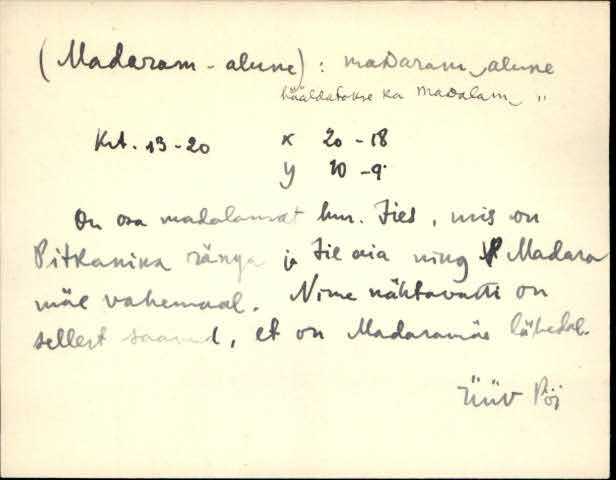 (Madaram-alune) : maDaram alune
hääldatakse ka maDalam "
Krt. 13-20 x 20-18
y 10-9
On osa madalamat hm. , mis on
Pitkanina ja ning Madara
mäe vahemaal. Nime nähtavasti on
sellest saanud, et on Madaramäe lähedal.